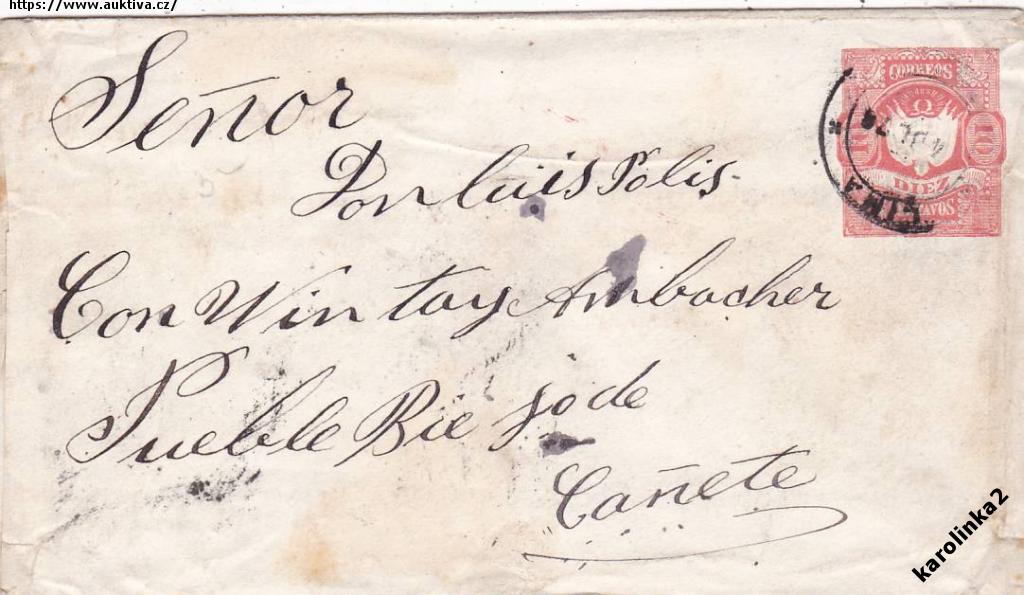 https://www.auktiva.cz/
Señor
Don luis Polis
Con Win tay Ambacher
Pueble Bie jo de
Cañete
CORREOS
10
DIEZ
LIMA
karolinka2